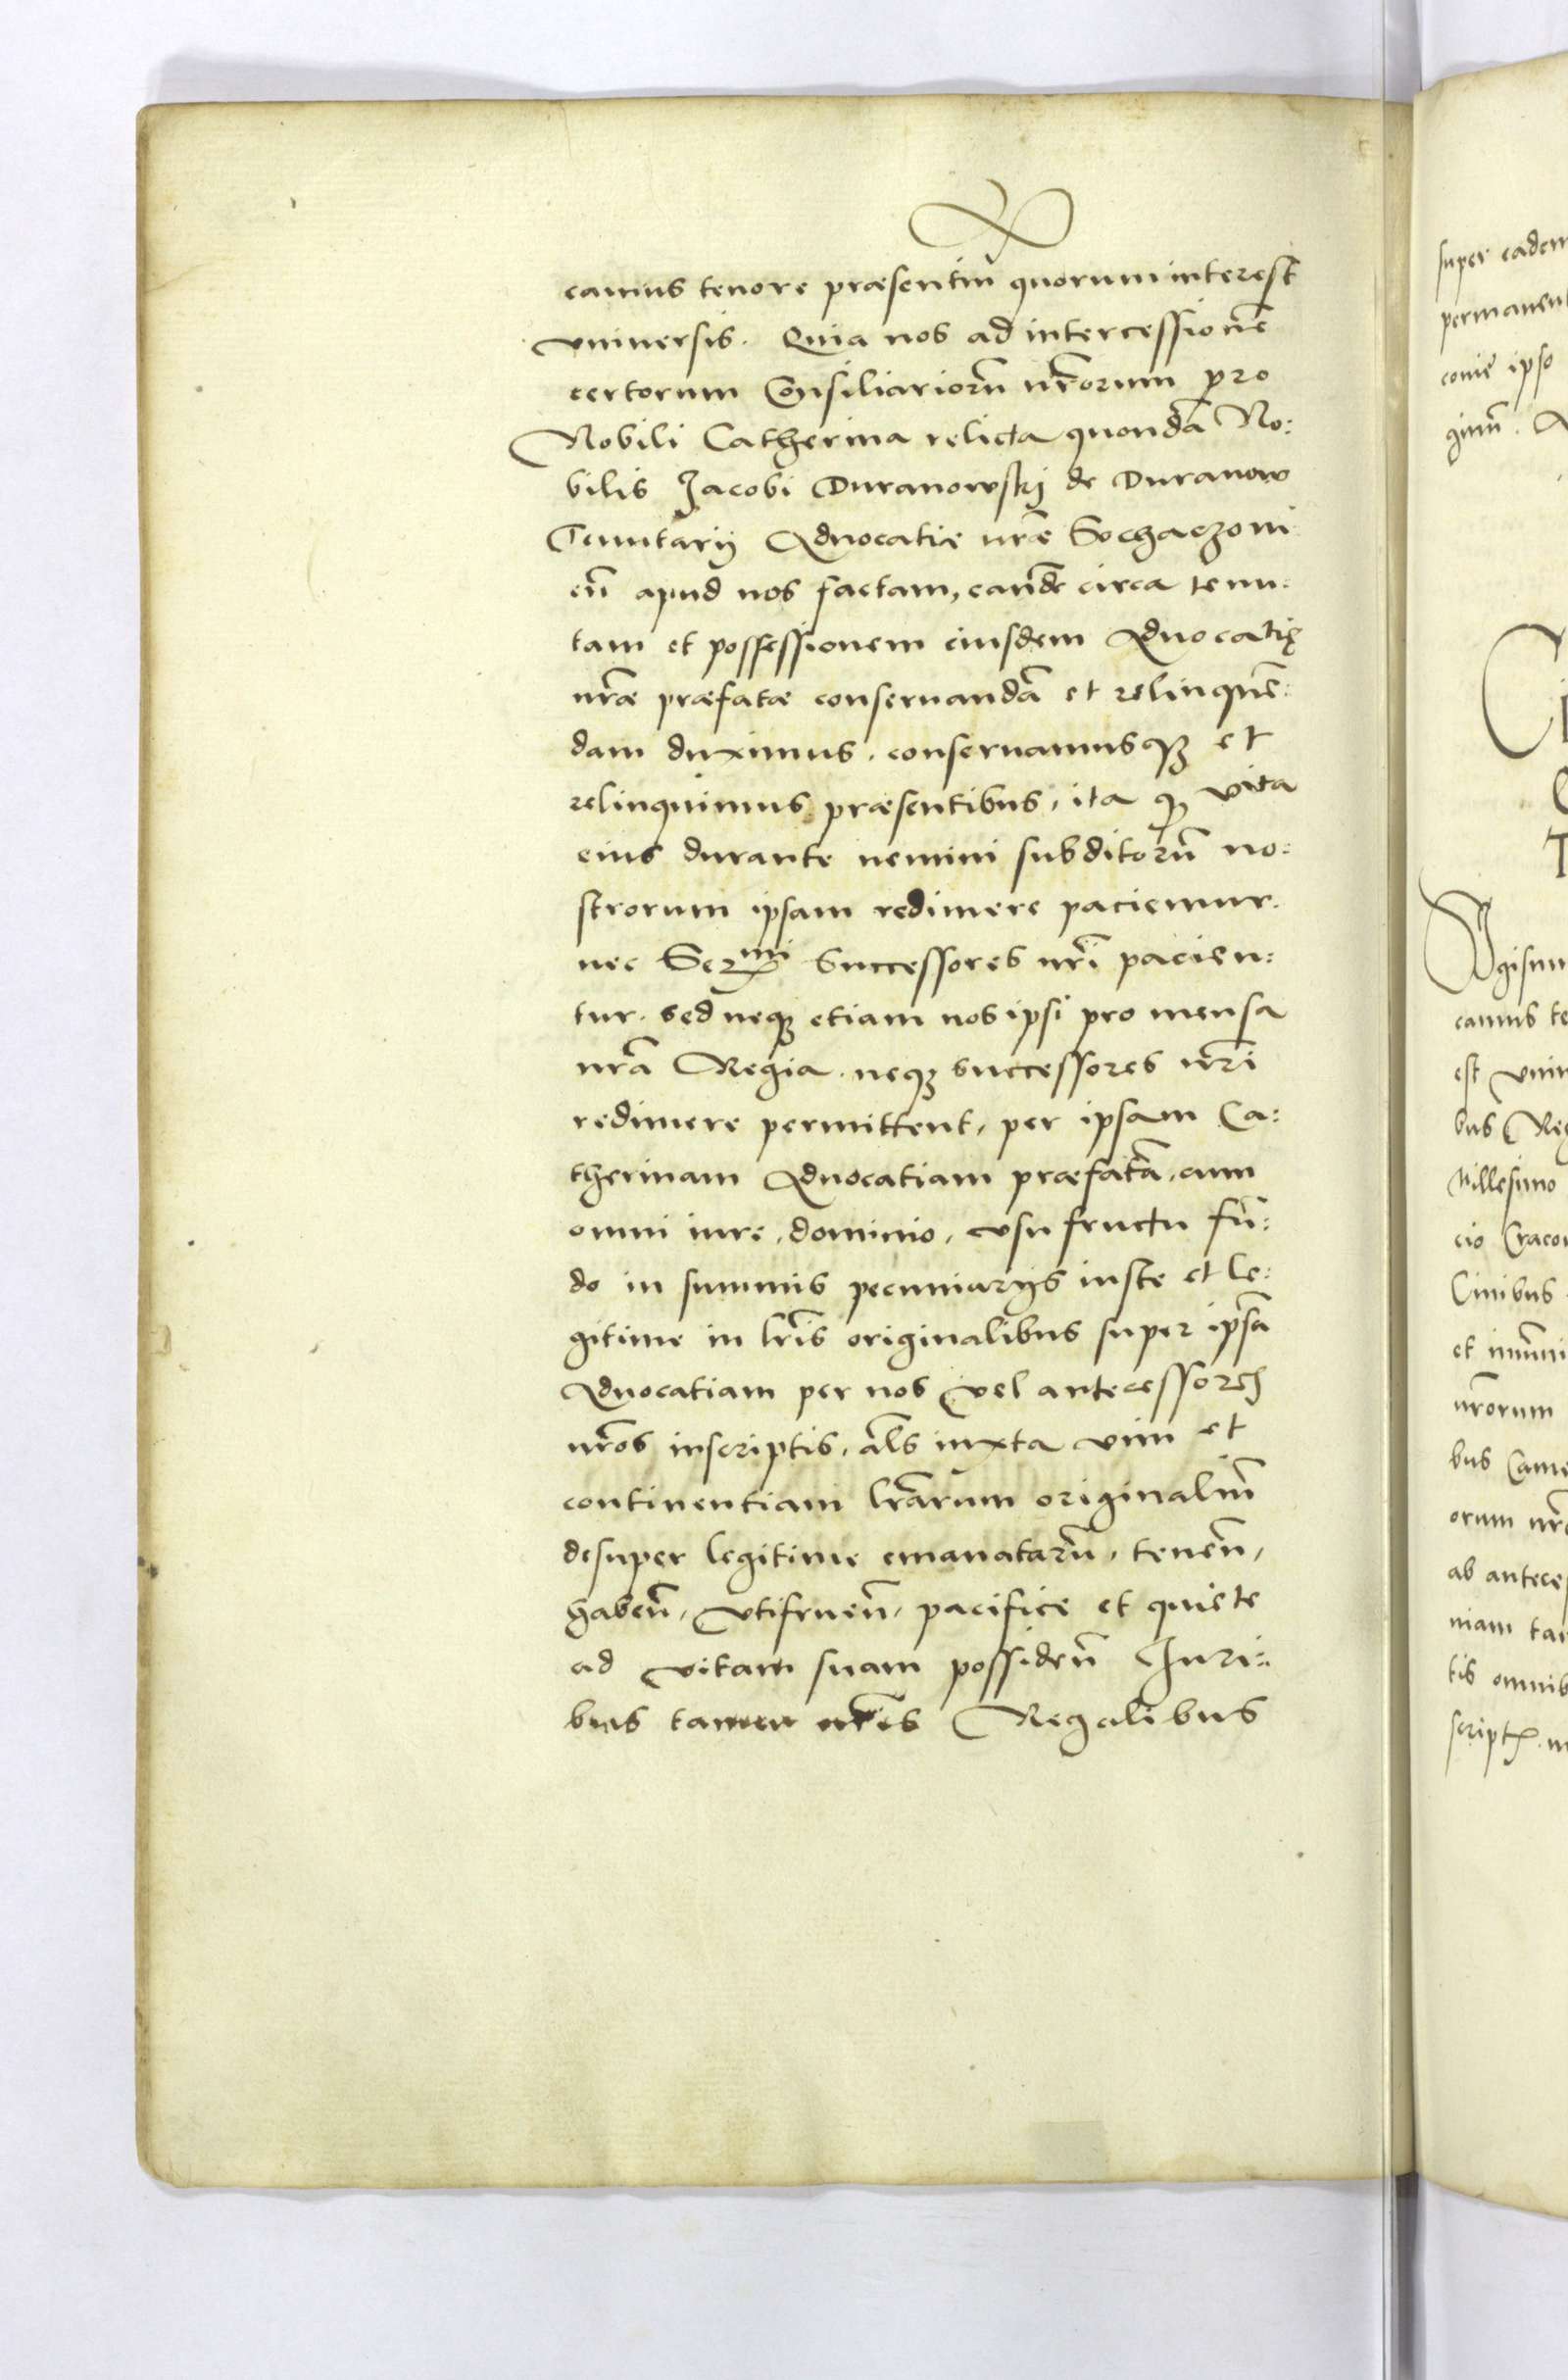 camus tenore præsentiū quorum interest
vniuersis. Quia nos ad intercessionē
certorum Consiliariorū nr̄orum pro
Nobili Catherina relicta quondā No:
bilis Jacobi Duranowskij de Duranow
Tenutarij Aduocatiæ nr̄æ Sochaczoui
eñ apud nos factam, eandē circa tenu:
tam et possessionem eiusdem Aduocatię
nr̄æ præfatæ conseruandā et relinquē:
dam duximus. conseruamusqꝫ et
relinquimus præsentibus, ita qꝫ vita
eius durante nemini subditorū no:
strorum ipsam redimere paciemur.
nec Ser^mi Successores nr̄i pacien:
tur. sed neqꝫ etiam nos ipsi pro mensa
nr̄a Regia. neqꝫ successores nr̄i
redimere permittent, per ipsam Ca:
therinam Aduocatiam præfatā, cum
omni iure, dominio, vsufructu fū:
do in summis pecuniarijs iuste et le:
gitime in lr̄is originalibus super ipsā
Aduocatiam per nos vel antecessores
nr̄os inscriptis, al̄s iuxta vim et
continentiam lr̄arum originaliū
desuper legitime emanatarū, teneñ,
habeñ, vtifrueñ, pacifice et quiete
ad vitam suam possideñ Iuri:
bus tamen nr̄is Regalibus
super eadem
permanen
ipso
Cracou
Ciuibus
nr̄orum
orum
ab antece
niam
tis omnib